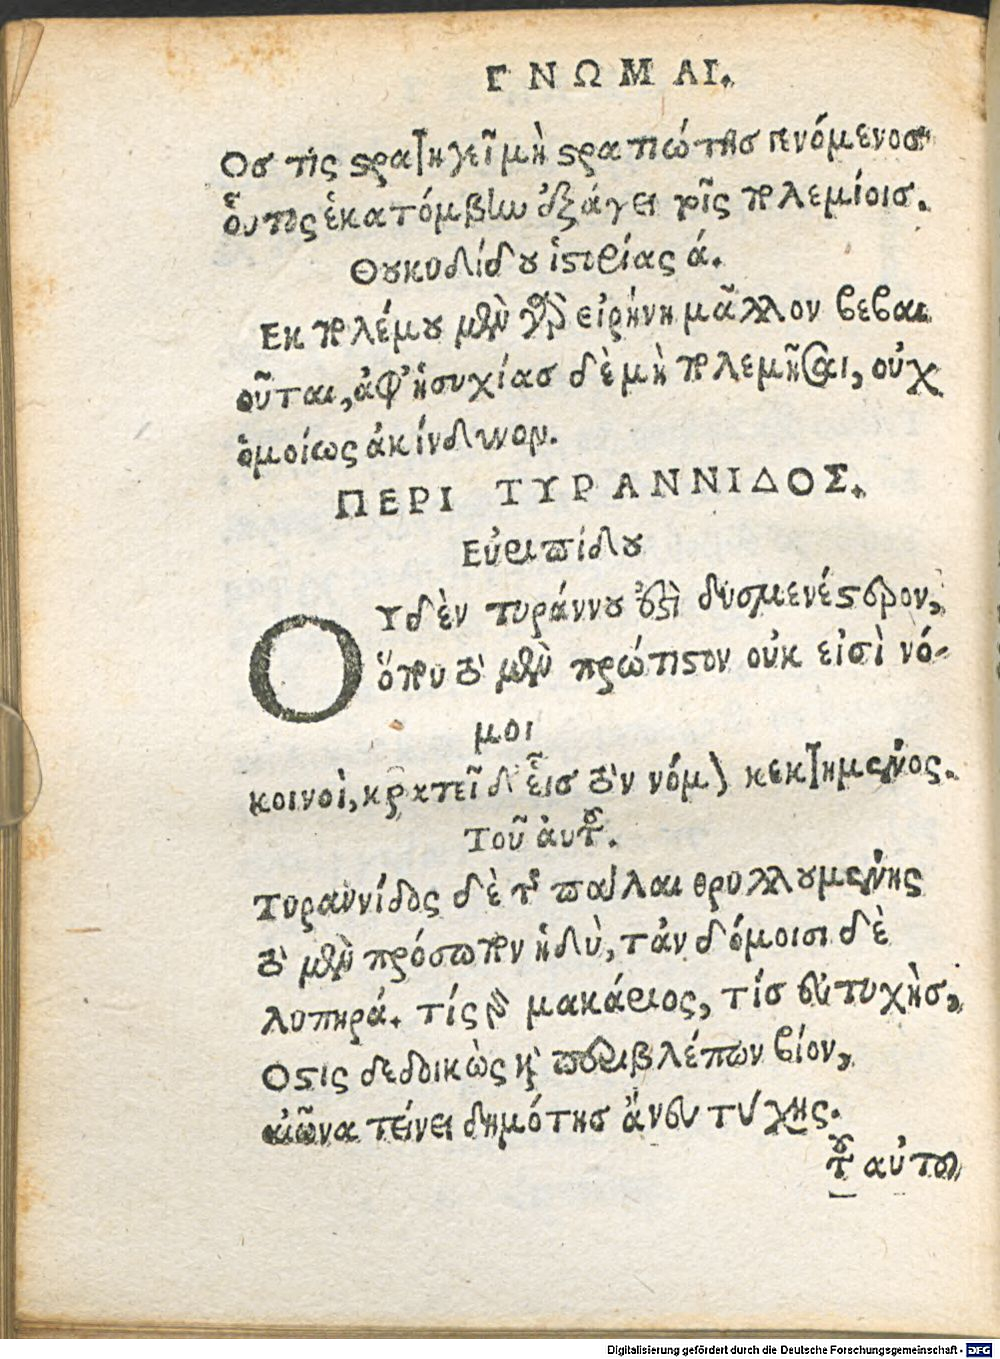 ΓΝΩΜΑΙ.
Οσ τις ϛρατηγεῖ μὴ ϛρατιώτησ γενόμενοσ
οὗτος ἑκατόμβην ἐξάγει τοῖς πολεμίοισ.
Θουκυδίδου ἱϛορίας ά.
Εκ πολέμου μὲν γὰρ εἰρήνη μᾶλλον βεβαι
οῦται, ἀφ' ἡσυχίασ δὲ μὴ πολεμῆσαι, οὐχ
ὁμοίως ἀκίνδυνον.
ΠΕΡΙ ΤΥΡΑΝΝΙΔΟΣ.
Εὐριπίδου
ΟΥδὲν τυράννου δυσμενέϛερον,
ὅπου τὸ μὲν πρώτιϛον οὐκ εἰσὶ νό-
μοι
κοινοὶ, κρατεῖ δ' εἷισ τὸν νόμον κεκτημένος.
Τοῦ ἀυτοῦ.
Τυραννίδος δὲ τῆς πάλαι θρυλλουμένης
τὸ μὲν πρόσωπον ἡδὺ, τἀν δόμοισι δὲ
λυπηρά. τίς γὰρ μακάριος, τίσ εὐτυχὴσ,
Οϛις δεδοικὼς καὶ περιβλέπων βίον,
αἰῶνα τείνει δημότησ ἂν εὐτυχὴς.
τοῦ αὐτοῦ
Digitalisierung gefördert durch die Deutsche Forschungsgemeinschaft - DFG